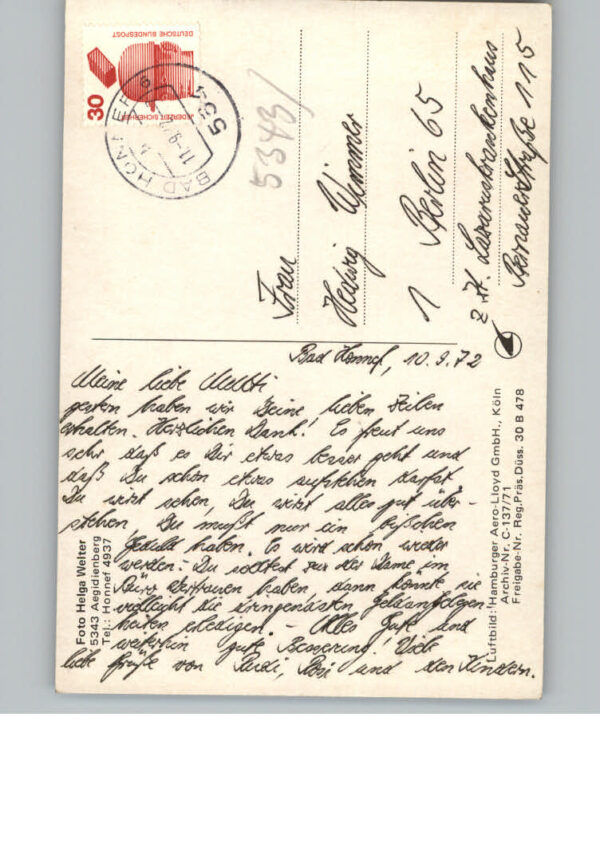 Bad Honnef, 10.9.72
Meine liebe Mutti
gestern haben wir Deine lieben Zeilen
erhalten. Herzlichen Dank! Es freut uns
sehr daß es Dir etwas besser geht und
daß Du schon etwas aufstehen darfst.
Du wirst sehen, Du wirst alles gut über-
stehen, Du mußt nur ein bißchen
Geduld haben. Es wird schon wieder
werden. - Du solltest zur der Dame im
Büro Vertrauen haben dann könnte sie
vielleicht die dringendsten Geldangelegen-
heiten erledigen. - Alles Gute und
weiterhin gute Besserung! Viele
liebe Grüße von Rudi, und den Kindern.
Foto Helga Welter
5343 Aegidienberg
Tel.: Honnef 4937
Luftbild: Hamburger Aero-Lloyd GmbH., Köln
Archiv-Nr. C-137/71
Freigabe-Nr. Reg.Präs.Düss. 30 B 478
DEUTSCHE BUNDESPOST
JEDERZEIT SICHERHEIT
30
534
BAD HONNEF
11.-9.72
5343/
Frau
Hedwig Wimmer
1 Berlin 65
z. Zt. Lazaruskrankenhaus
Bernauerstraße 115